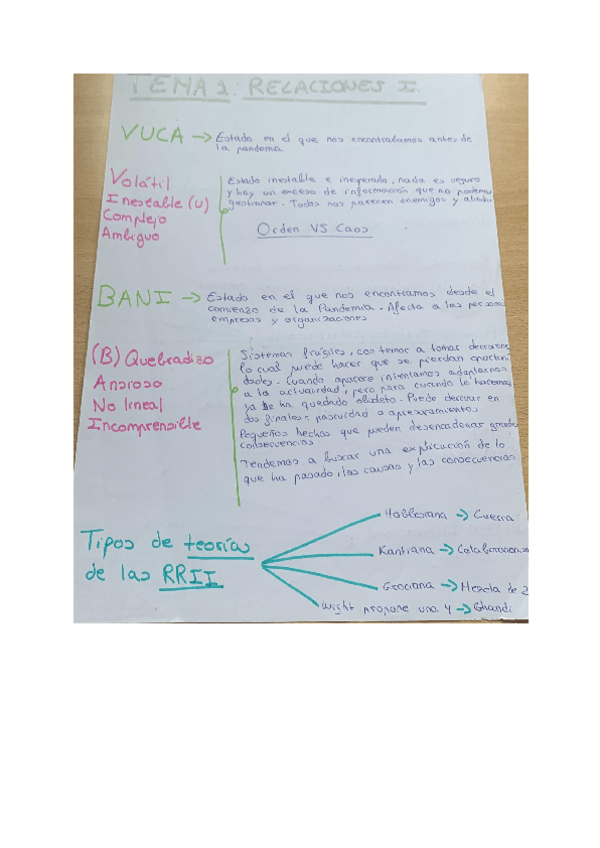 TEMA 1. RELACIONES I.
VUCA → Estado en el que nos encontrabamos antes de
la pandemia
Volátil
Inestable (U)
Complejo
Ambiguo
Estado inestable e inesperado, nada es seguro
y hay un exceso de información que no podemos
gestionar. Todos nos parecen enemigos y aliado
Orden VS Caos
BANI → Estado en el que nos encontramos desde el
comienzo de la Pandemia. Afecta a las persona
empresas y organizaciones
(B) Quebradizo
Ansioso
No lineal
Incomprensible
Sistemas frágiles, con temor a tomar decisione
lo cual puede hacer que se pierdan oportuni
dades. Cuando aparece intentamos adaptarnos
a la actualidad, pero para cuando lo hacemos
ya se ha quedado obsoleto. Puede derivar en
dos finales: pasividad o apresuramiento
Pequeños hechos que pueden desencadenar grande
consecuencias
Tendemos a buscar una explicación de lo
que ha pasado, las causas y las consecuencias
Tipos de teorías
de las RRII
Hobbesiana → Guerra
Kantiana → Colaboracionis
Grociana → Mezcla de 2
Wight propone una 4 → Ghandi